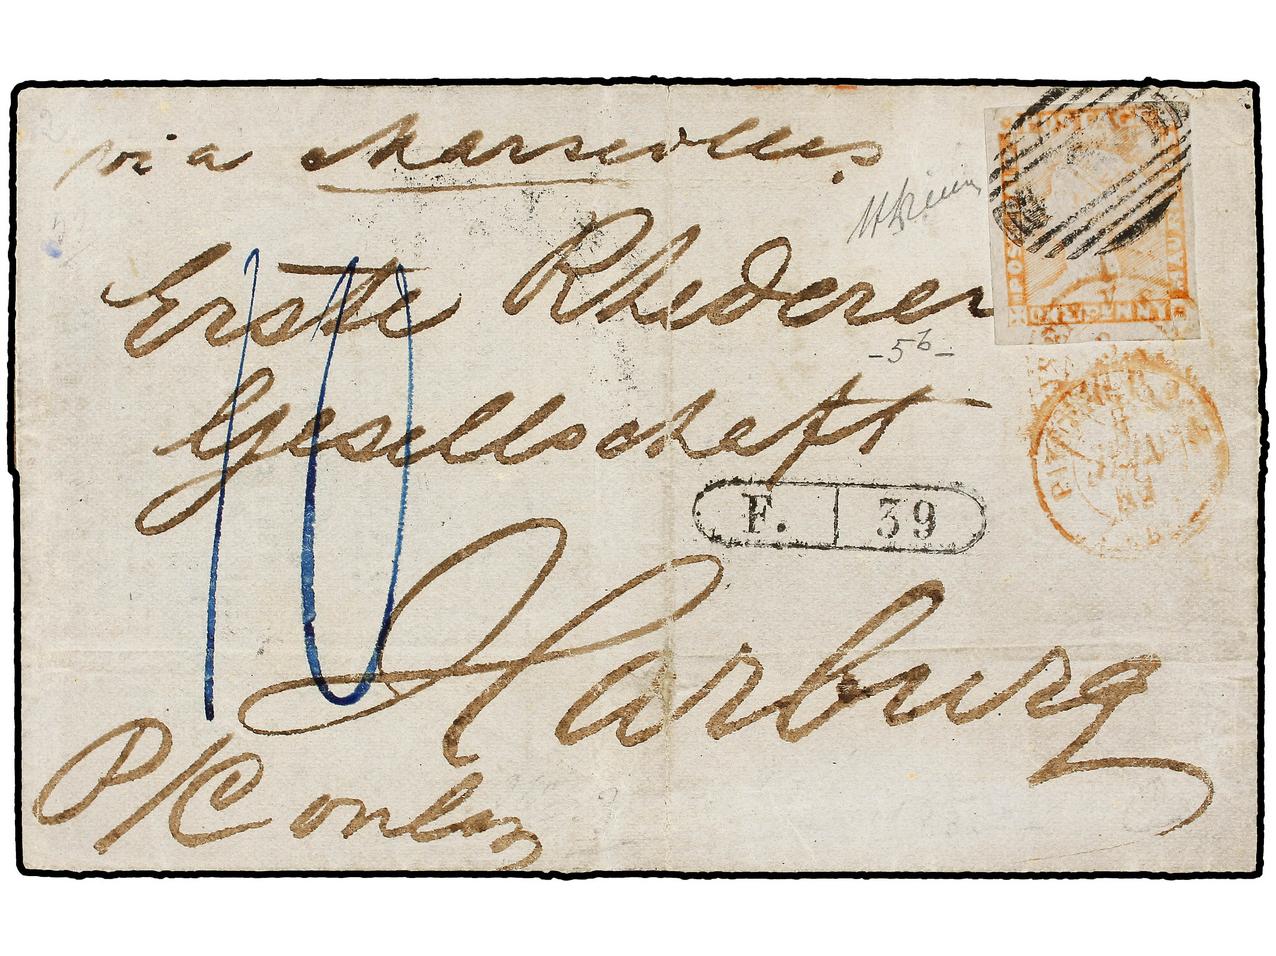 via Marseilles
Erste Rhederei
-56-
Gesellschaft
F. 39
10
Harburg
P/C only
POSTAGE
POST PAID
MAURITIUS
ONE PENNY